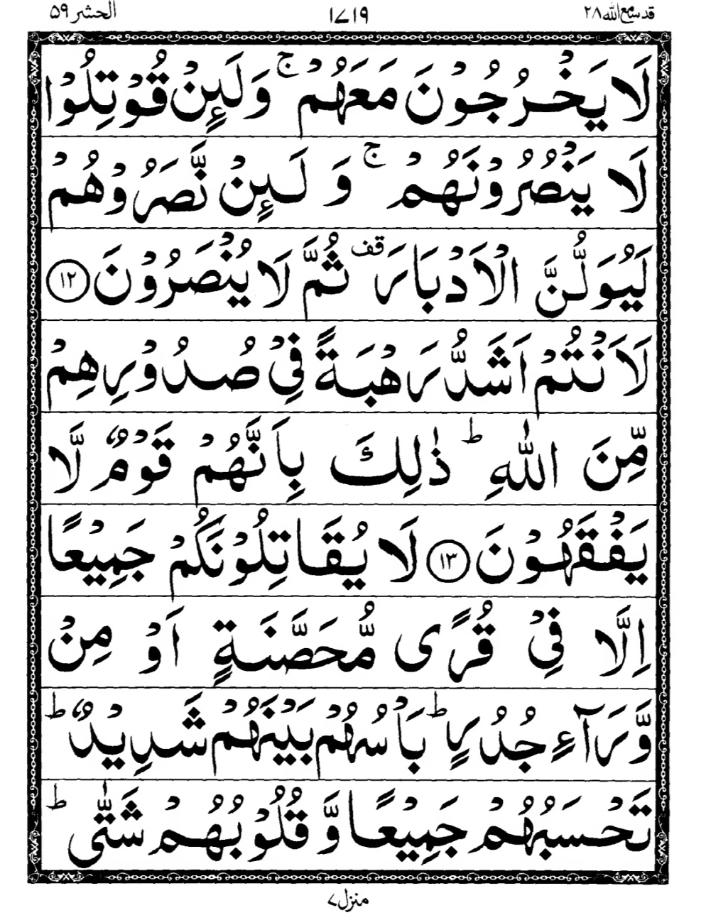 قد سمع الله ٢٨
١٧١٩
الحشر ٥٩
لَا يَخْرُجُوْنَ مَعَهُمْ ۚ وَلَىِٕنْ قُوْتِلُوْا
لَا يَنْصُرُوْنَهُمْ ۚ وَ لَىِٕنْ نَّصَرُوْهُمْ
لَيُوَلُّنَّ الْاَدْبَارَ قف ثُمَّ لَا يُنْصَرُوْنَ ١٢
لَاَنْتُمْ اَشَدُّ رَهْبَةً فِيْ صُدُوْرِهِمْ
مِّنَ اللّٰهِ ؕ ذٰلِكَ بِاَنَّهُمْ قَوْمٌ لَّا
يَفْقَهُوْنَ ١٣ لَا يُقَاتِلُوْنَكُمْ جَمِيْعًا
اِلَّا فِيْ قُرًى مُّحَصَّنَةٍ اَوْ مِنْ
وَّرَآءِ جُدُرٍ ؕ بَاْسُهُمْ بَيْنَهُمْ شَدِيْدٌ ؕ
تَحْسَبُهُمْ جَمِيْعًا وَّ قُلُوْبُهُمْ شَتّٰى ؕ
منزل ٧